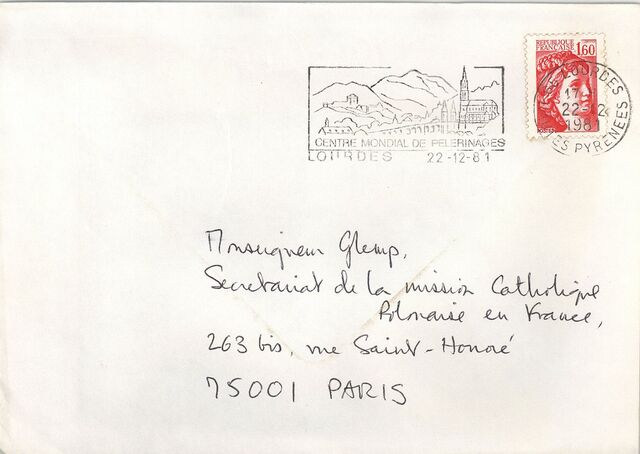 REPUBLIQUE FRANCAISE 1,60
LOURDES
17
22-12
1981
PYRENEES
CENTRE MONDIAL DE PELERINAGES
LOURDES 22-12-81
Monseigneur Glemp,
Secretariat de la mission Catholique
Polonaise en France,
263 bis, rue Saint-Honoré
75001 PARIS